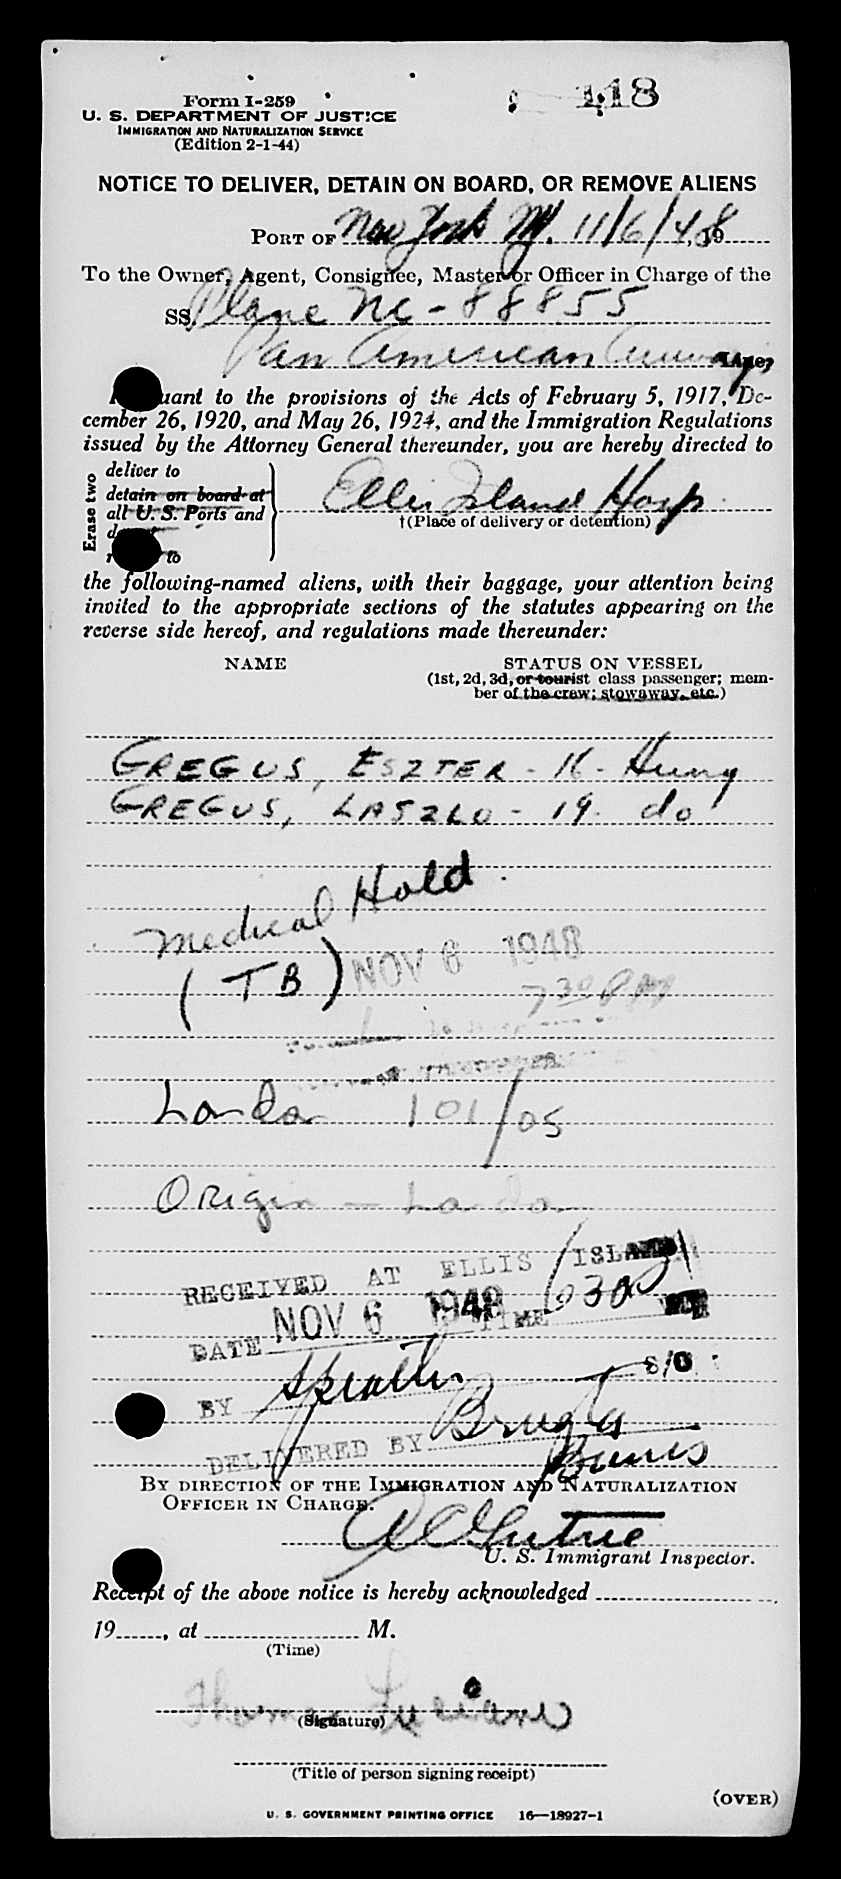 118
Form I-259
U. S. DEPARTMENT OF JUSTICE
IMMIGRATION AND NATURALIZATION SERVICE
(Edition 2-1-44)
NOTICE TO DELIVER, DETAIN ON BOARD, OR REMOVE ALIENS
PORT OF New York NY. 11/6/48, 19
To the Owner, Agent, Consignee, Master or Officer in Charge of the
SS. Plane NC-88855
Pan American Airways Line,
Pursuant to the provisions of the Acts of February 5, 1917, De-
cember 26, 1920, and May 26, 1924, and the Immigration Regulations
issued by the Attorney General thereunder, you are hereby directed to
Erase two
deliver to
detain on board at
all U. S. Ports and
to
Ellis Island Hosp.
†(Place of delivery or detention)
the following-named aliens, with their baggage, your attention being
invited to the appropriate sections of the statutes appearing on the
reverse side hereof, and regulations made thereunder:
NAME
STATUS ON VESSEL
(1st, 2d, 3d, or tourist class passenger; mem-
ber of the crew; stowaway, etc.)
GREGUS, ESZTER - 16 - Hung
GREGUS, LASZLO - 19. do
Medical Hold.
(TB)
NOV 6 1948
7 30 PM
London 101/05
Origin - London
RECEIVED AT ELLIS ISLAND
DATE NOV 6 1948 TIME 1030
BY S/O
DELIVERED BY
Burns
BY DIRECTION OF THE IMMIGRATION AND NATURALIZATION
OFFICER IN CHARGE.
U. S. Immigrant Inspector.
Receipt of the above notice is hereby acknowledged
19 , at M.
(Time)
Thomas
(Signature)
(Title of person signing receipt)
(OVER)
U. S. GOVERNMENT PRINTING OFFICE 16—18927-1